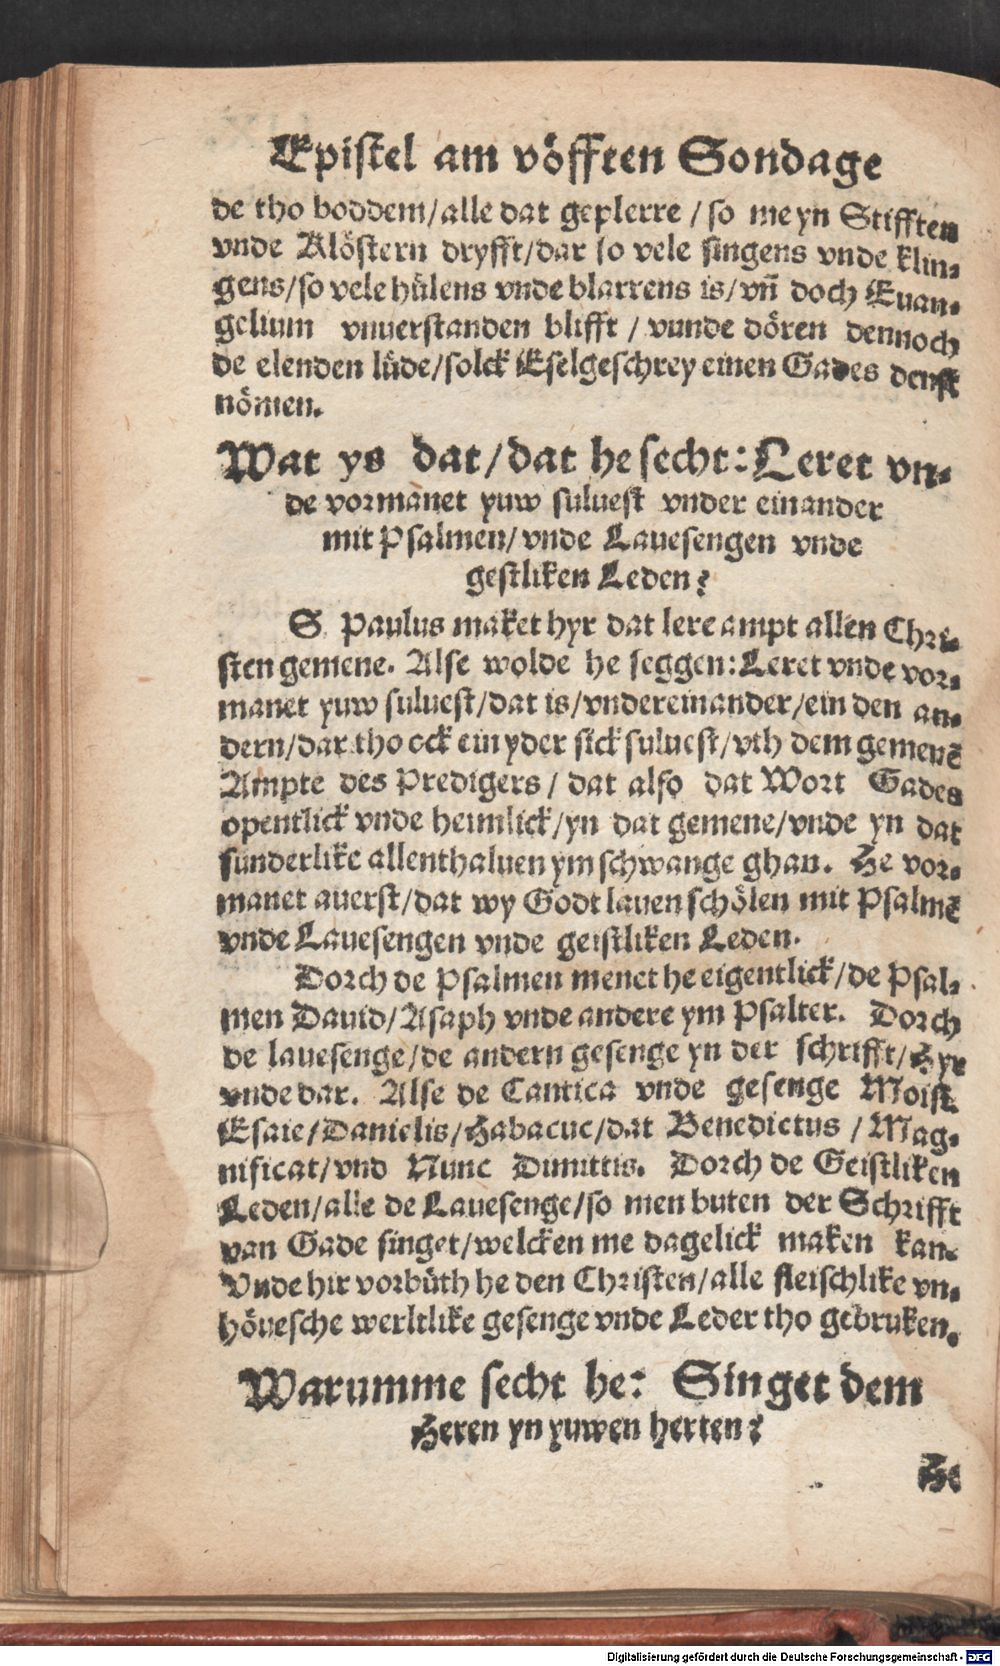 Epistel am vöfften Sondage
de tho boddem/alle dat geplerre/so me yn Stifften
vnde Klöstern dryfft/dar so vele singens vnde klin-
gens/so vele hülens vnde blarrens is/vn̄ doch Euan-
gelium vnuerstanden blifft/vnnde dören dennoch
de elenden lüde/solck Eselgeschrey einen Gades denst
nömen.
Wat ys dat/dat he secht: Leret vn-
de vormanet yuw suluest vnder einander
mit Psalmen/vnde Lauesengen vnde
gestliken Leden?
S. Paulus maket hyr dat lere ampt allen Chri-
sten gemene. Alse wolde he seggen: Leret vnde vor-
manet yuw suluest/dat is/vndereinander/ein den an-
dern/dar tho ock ein yder sick suluest/vth dem gemenē
Ampte des Predigers/dat also dat Wort Gades
opentlick vnde heimlick/yn dat gemene/vnde yn dat
sunderlike allenthaluen ym schwange ghan. He vor-
manet auerst/dat wy Godt lauen schölen mit Psalmē
vnde Lauesengen vnde geistliken Leden.
Dorch de Psalmen menet he eigentlick/de Psal-
men Dauid/Asaph vnde andere ym Psalter. Dorch
de lauesenge/de andern gesenge yn der schrifft/Hyr
vnde dar. Alse de Cantica vnde gesenge Moisi
Esaie/Danielis/Habacuc/dat Benedictus/Mag-
nificat/vnd Nunc Dimittis. Dorch de Geistliken
Leden/alle de Lauesenge/so men buten der Schrifft
van Gade singet/welcken me dagelick maken kan.
Vnde hir vorbüth he den Christen/alle fleischlike vn-
höuesche werltlike gesenge vnde Leder tho gebruken.
Warumme secht he: Singet dem
Heren yn yuwen herten?
He
Digitalisierung gefördert durch die Deutsche Forschungsgemeinschaft - DFG